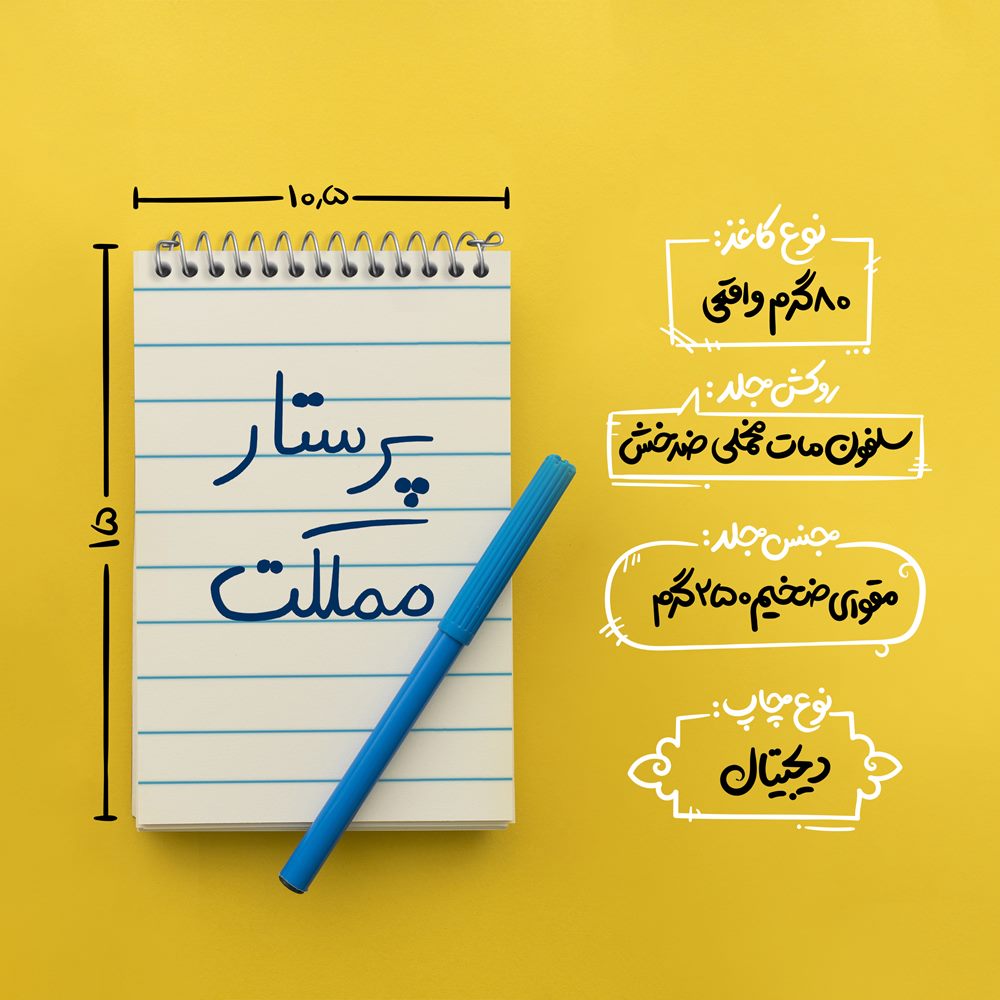 ۱۰٫۵
۱۵
پرستار
مملکت
نوع کاغذ:
۸۰گرم واقعی
روکش جلد:
سلفون مات مخملی ضدخش
جنس جلد:
مقوای ضخیم ۲۵۰گرم
نوع چاپ:
دیجیتال